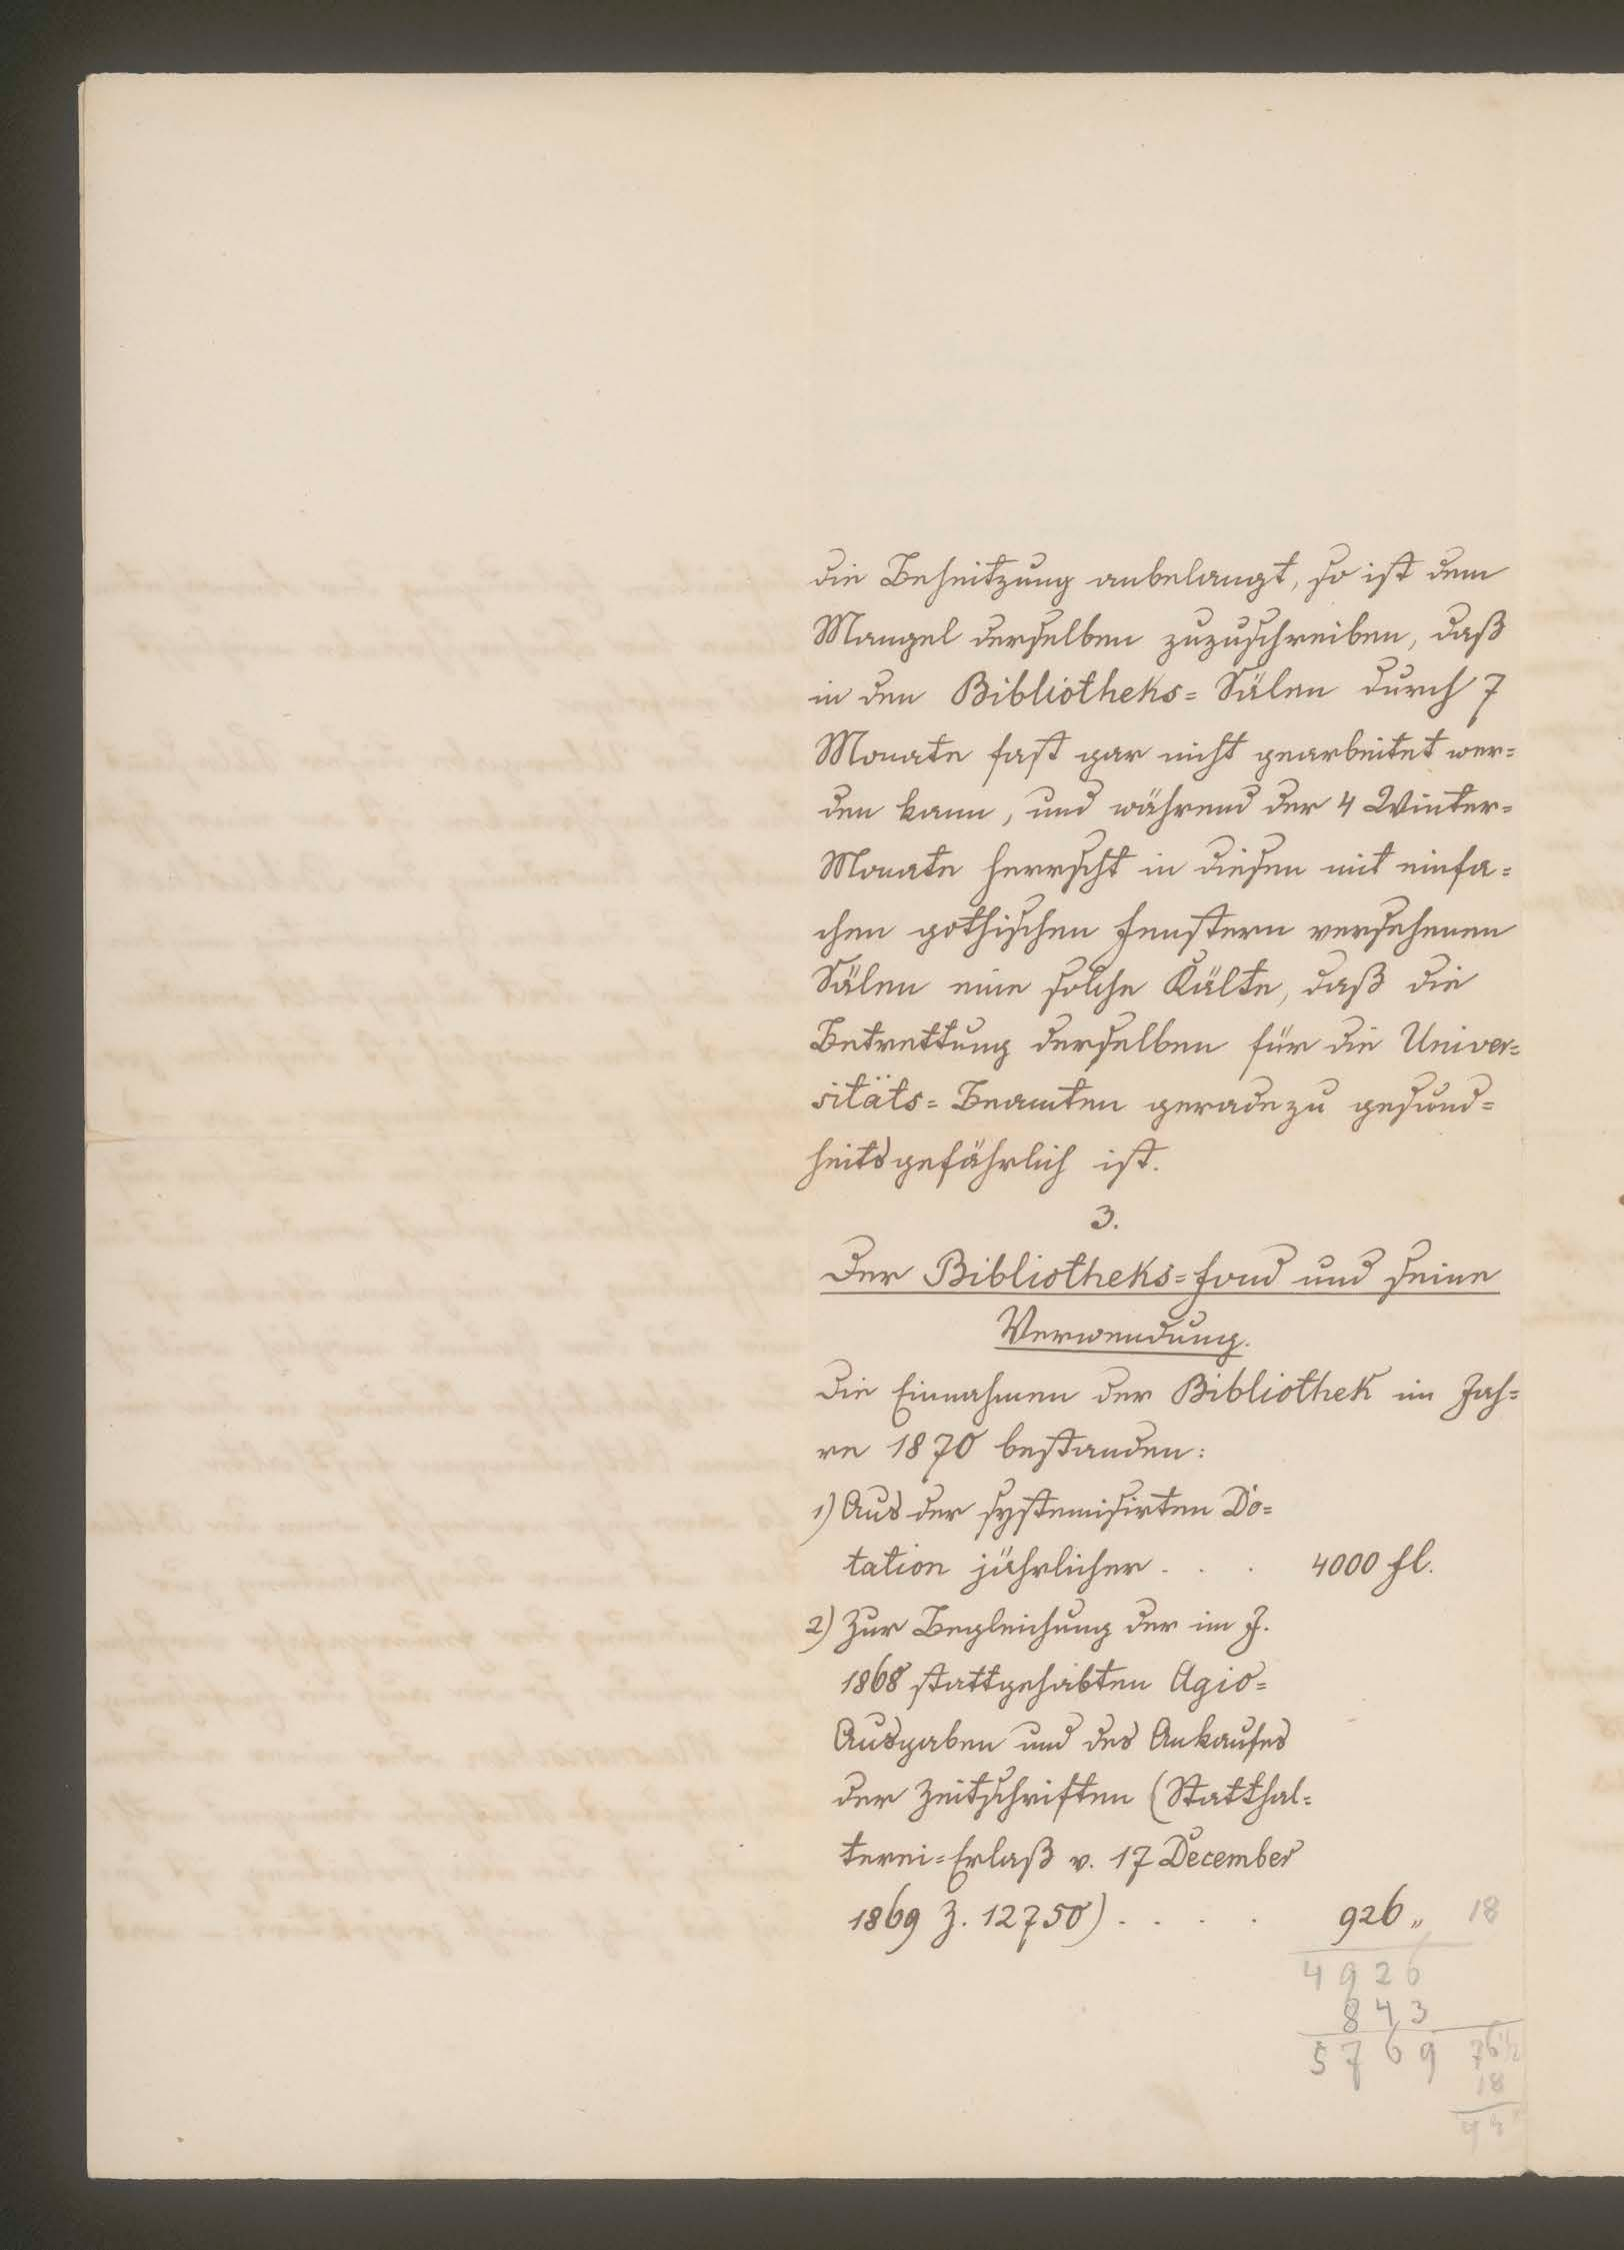 die Beheitzung anbelangt, so ist dem
Mangel derselben zuzuschreiben, daß
in den Bibliotheks= Sälen durch 7
Monate fast gar nicht gearbeitet wer=
den kann, und während der 4 Winter=
Monate herrscht in diesen mit einfa=
chen gothischen Fenstern versehenen
Sälen eine solche Kälte, daß die
Betrettung derselben für die Univer=
sitäts= Beamten geradezu gesund=
heitsgefährlich ist.
3.
Der Bibliotheks=Fond und seine
Verwendung.
Die Einnahmen der Bibliothek im Jah=
re 1870 bestanden:
1) Aus der systemisirten Do=
tation jährlicher . . . 4000 fl.
2) Zur Begleichung der im J.
1868 stattgehabten Agio=
Ausgaben und des Ankaufes
der Zeitschriften (Statthal=
terei=Erlaß v. 17 December
1869 Z. 12750) . . . . 926 „ 18
4926
843
5769 76½
18